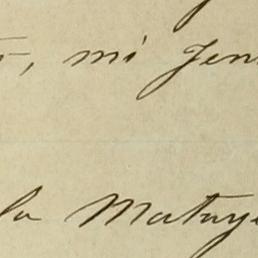 , mi Jen
la Matuy